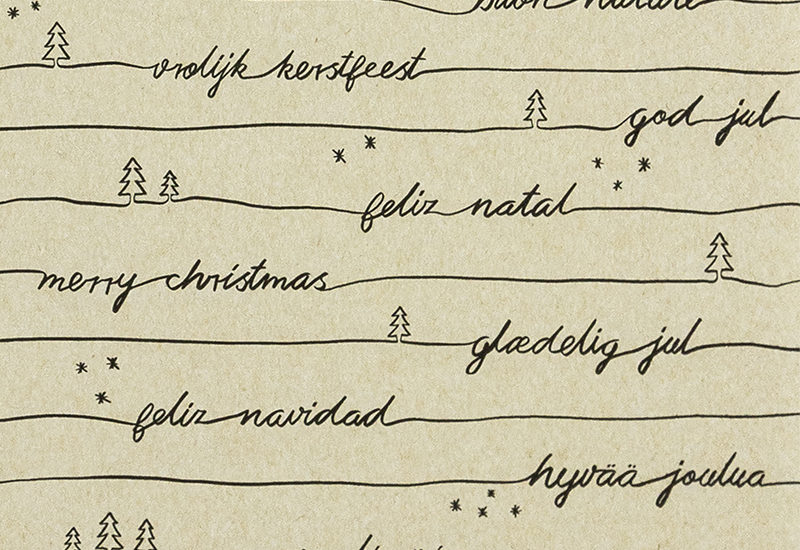 buon natale
vrolijk kerstfeest
god jul
feliz natal
merry christmas
glædelig jul
feliz navidad
hyvää joulua